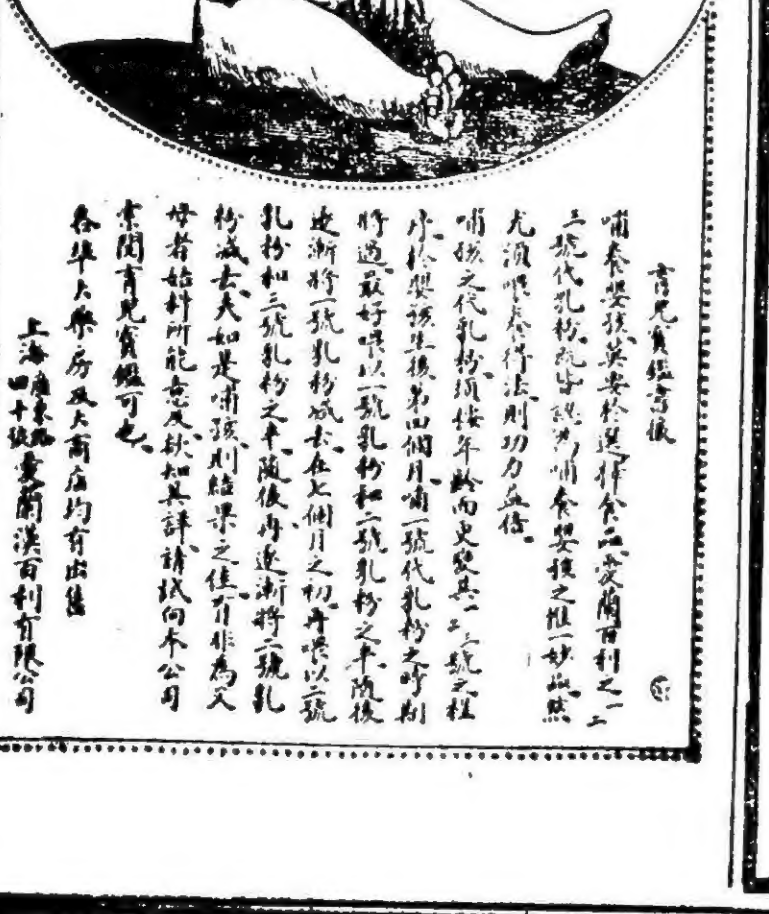 育兒寶鑑寄候
哺養嬰孩莫要於選擇食品愛蘭百利之一二
三號代乳粉咸皆認為哺養嬰孩之惟一妙品然
尤須喂養得法則功力益倍
哺孩之代乳粉須按年齡而更變其一二三號之程
序於嬰孩生後第四個月哺一號代乳粉之時期
將過最好喂以一號乳粉和二號乳粉之半隨後
逐漸將一號乳粉減去在七個月之初再喂以二號
乳粉和三號乳粉之半隨後再逐漸將二號乳
粉減去夫如是哺孩則結果之佳有非為父
母者始料所能意及欲知其詳請試向本公司
索閱育兒寶鑑可也
各埠大藥房及大商店均有出售
上海廣東路
四十號愛蘭漢百利有限公司